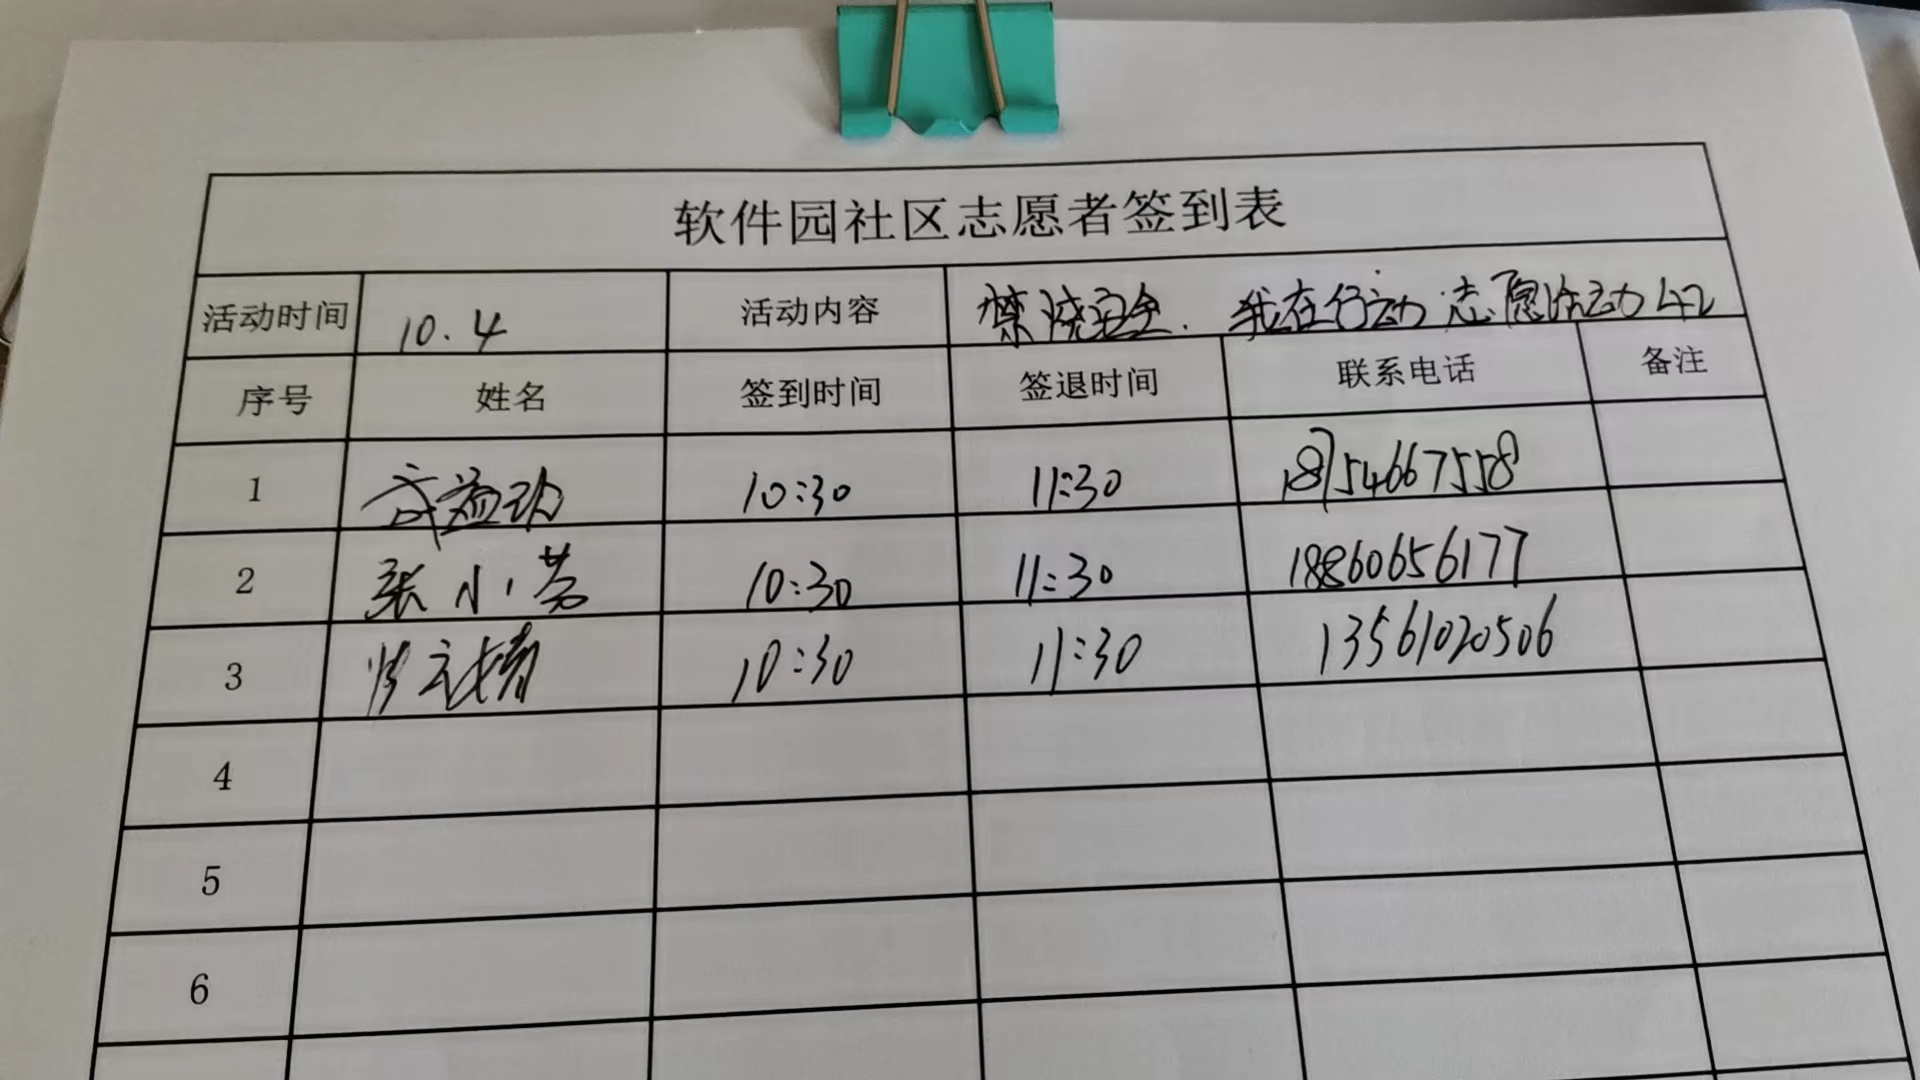 软件园社区志愿者签到表
活动时间 10.4 活动内容 禁烧安全. 我在行动 志愿活动42
序号 姓名 签到时间 签退时间 联系电话 备注
1 10:30 11:30 18754667558
2 张小芳 10:30 11:30 18860656177
3 10:30 11:30 13561020506
4
5
6